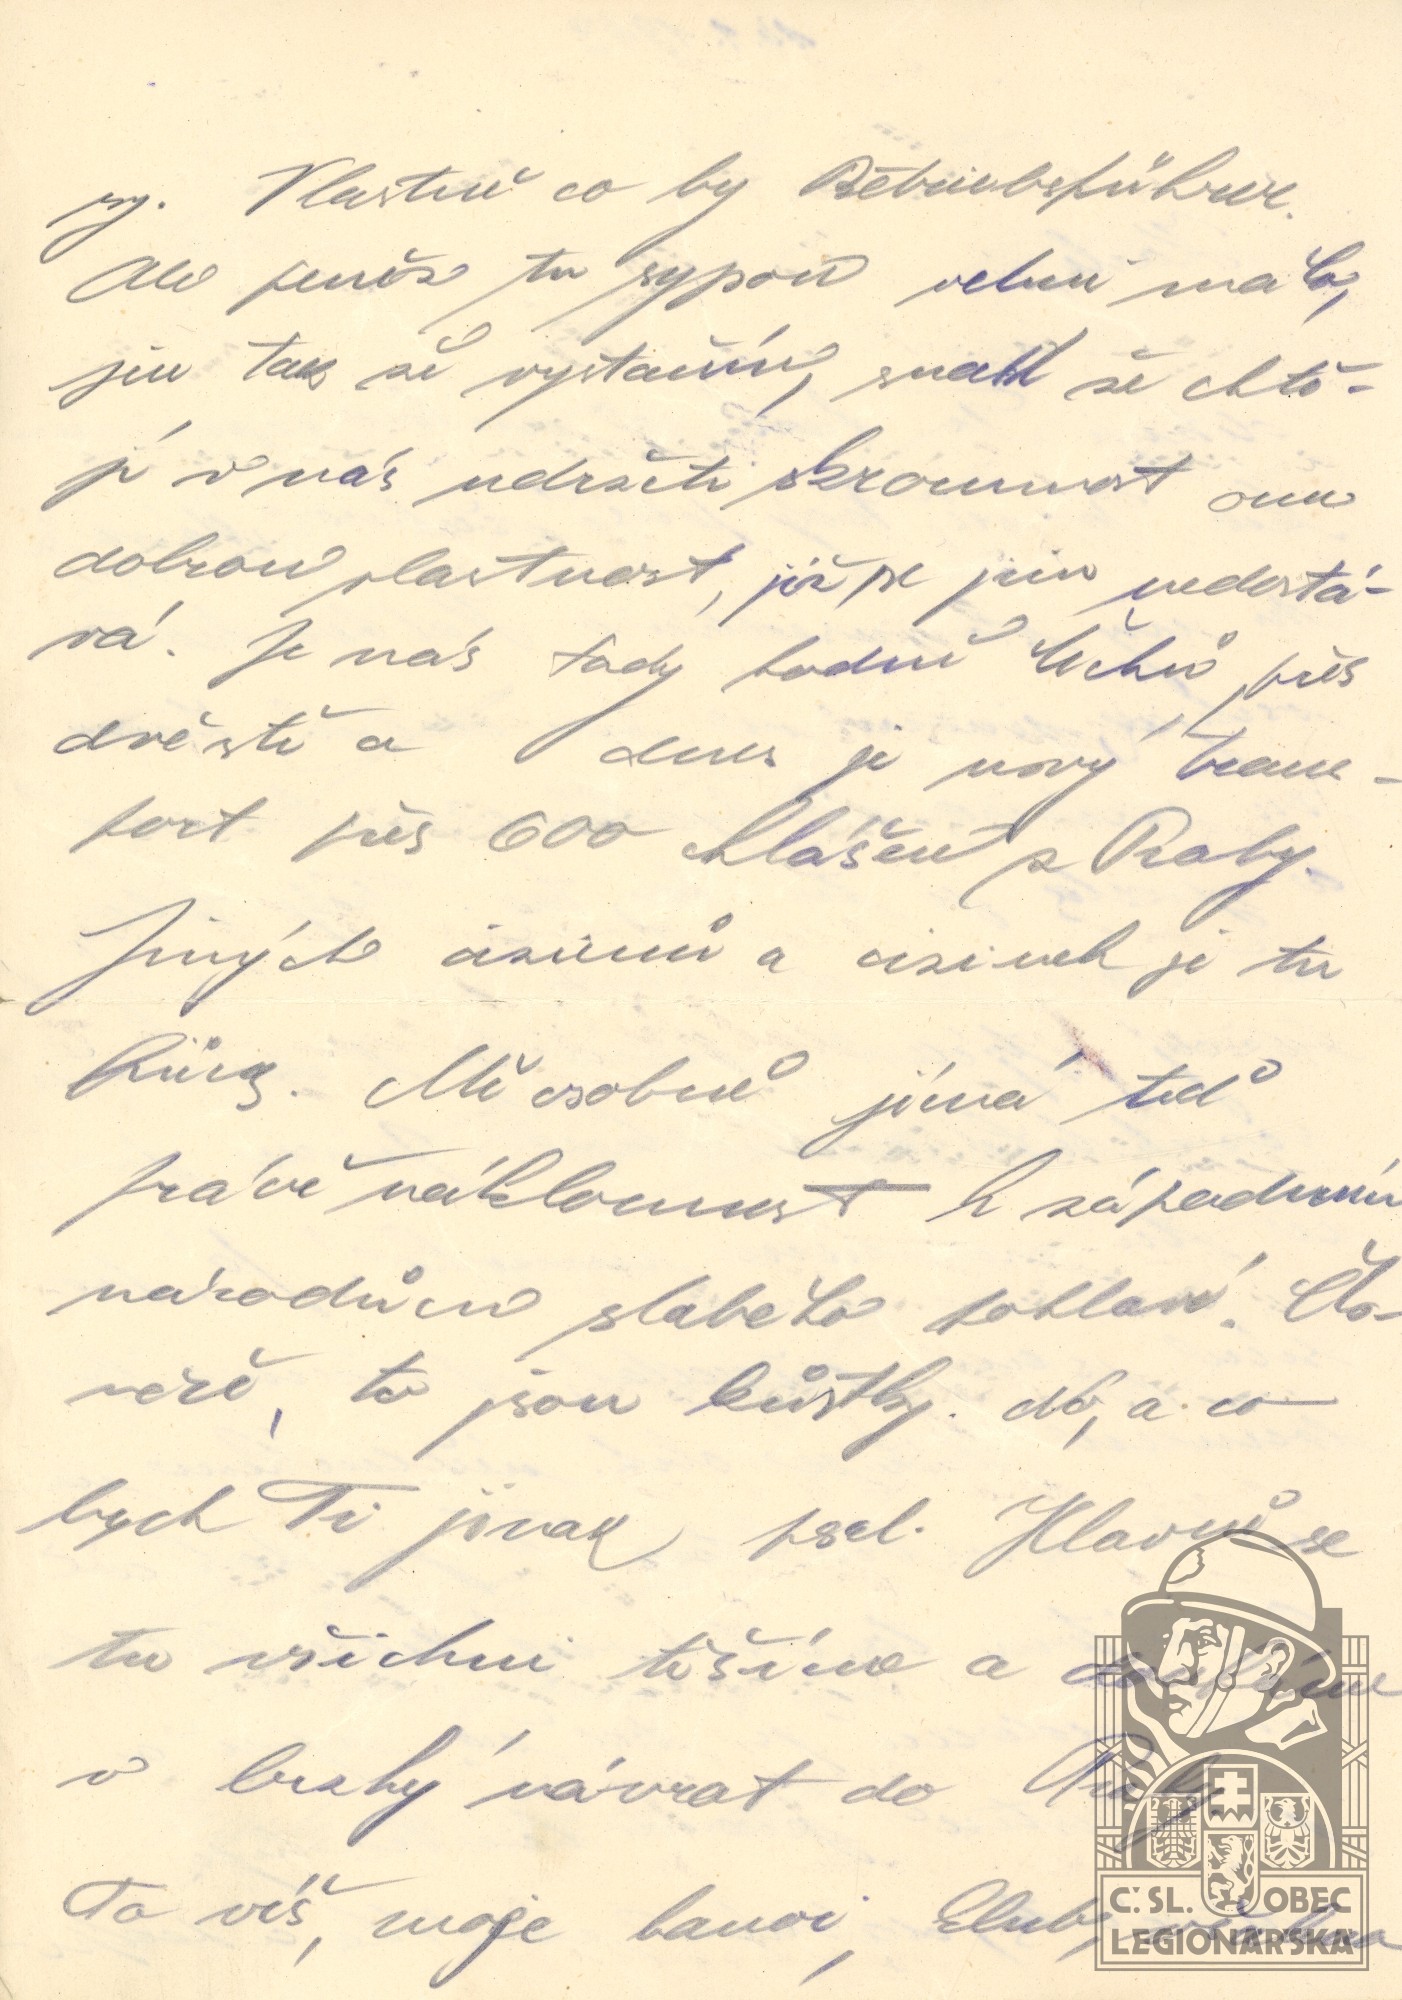 ry. Vlastně co by Betriebsführer.
Ale peněz tu sypou velmi málo,
jen tak že vystačím, snad že chtě-
jí v nás udržeti skromnost onu
dobrou vlastnost, jíž se jim nedostá-
vá. Je nás tady hodně Čechů, přes
dvěstě a dnes je nový trans-
port přes 600 hlášen z Prahy.
Jiných cizinců a cizinek je tu
Mě osobně jímá teď
právě náklonnost k západním
národům slabého pohlaví. Člo-
věče, to jsou kůstky. No, a co
bych Ti jinak psal. Hlavně se
tu všichni těšíme a doufáme
v brzký návrat do Prahy
To víš, moje hanoi, Club,
Č. SL. OBEC
LEGIONÁŘSKÁ